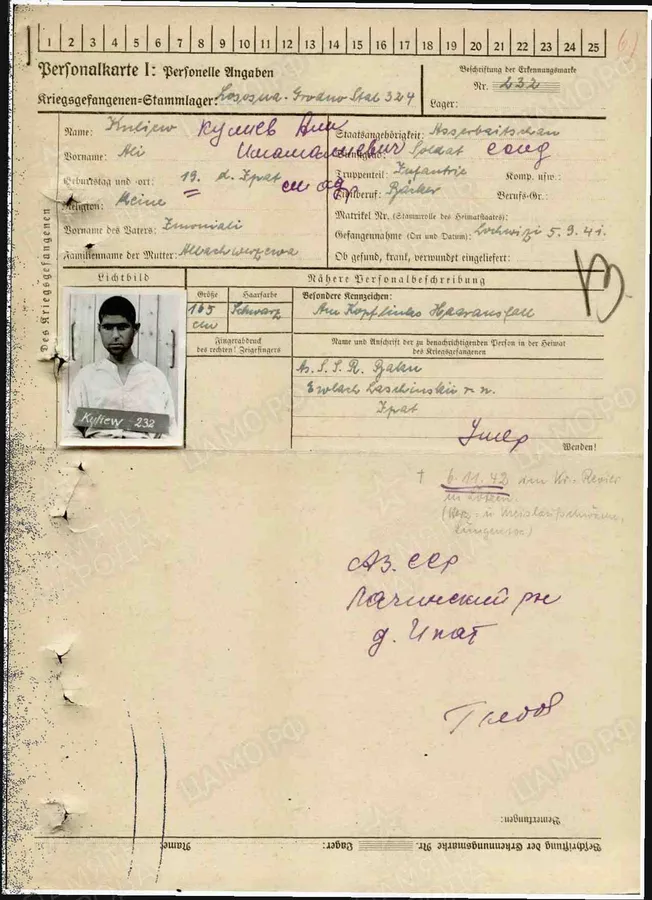 1 2 3 4 5 6 7 8 9 10 11 12 13 14 15 16 17 18 19 20 21 22 23 24 25
Personalkarte I: Personelle Angaben
Kriegsgefangenen=Stammlager: Lososna-Grodno Stal 324
Beschriftung der Erkennungsmarke
Nr. 232
Lager:
Des Kriegsgefangenen
Name: Kuliew Кулиев Али
Vorname: Ali
Geburtstag und -ort: 19. d. Ipat
Religion: Keine
Vorname des Vaters: Imoniali
Familienname der Mutter:
Staatsangehörigkeit: Asserbaitschan
Dienstgrad: Soldat солд
Truppenteil: Infantrie Komp. usw.:
Zivilberuf: Bäcker Berufs-Gr.:
Matrikel Nr. (Stammrolle des Heimatstaates):
Gefangennahme (Ort und Datum): Lochwizi 5.9.41.
Ob gesund, krank, verwundet eingeliefert:
Lichtbild
Nähere Personalbeschreibung
Größe
165 cm
Haarfarbe
Schwarz
Besondere Kennzeichen:
Am Kopf links Haarausfall
Fingerabdruck
des rechten! Zeigefingers
Name und Anschrift der zu benachrichtigenden Person in der Heimat
des Kriegsgefangenen
As. S. S. R. Baku
Ipat
Kyliew 232
Умер
Wenden!
† 6.11.42 im Kr.-Revier
in Lötzen
Аз. ССР
Лачинский рн
д. Ипат
Глебов
Bemerkungen:
Beschriftung der Erkennungsmarke Nr.
Lager:
Name:
ЦАМО РФ
ПАМЯТЬ НАРОДА